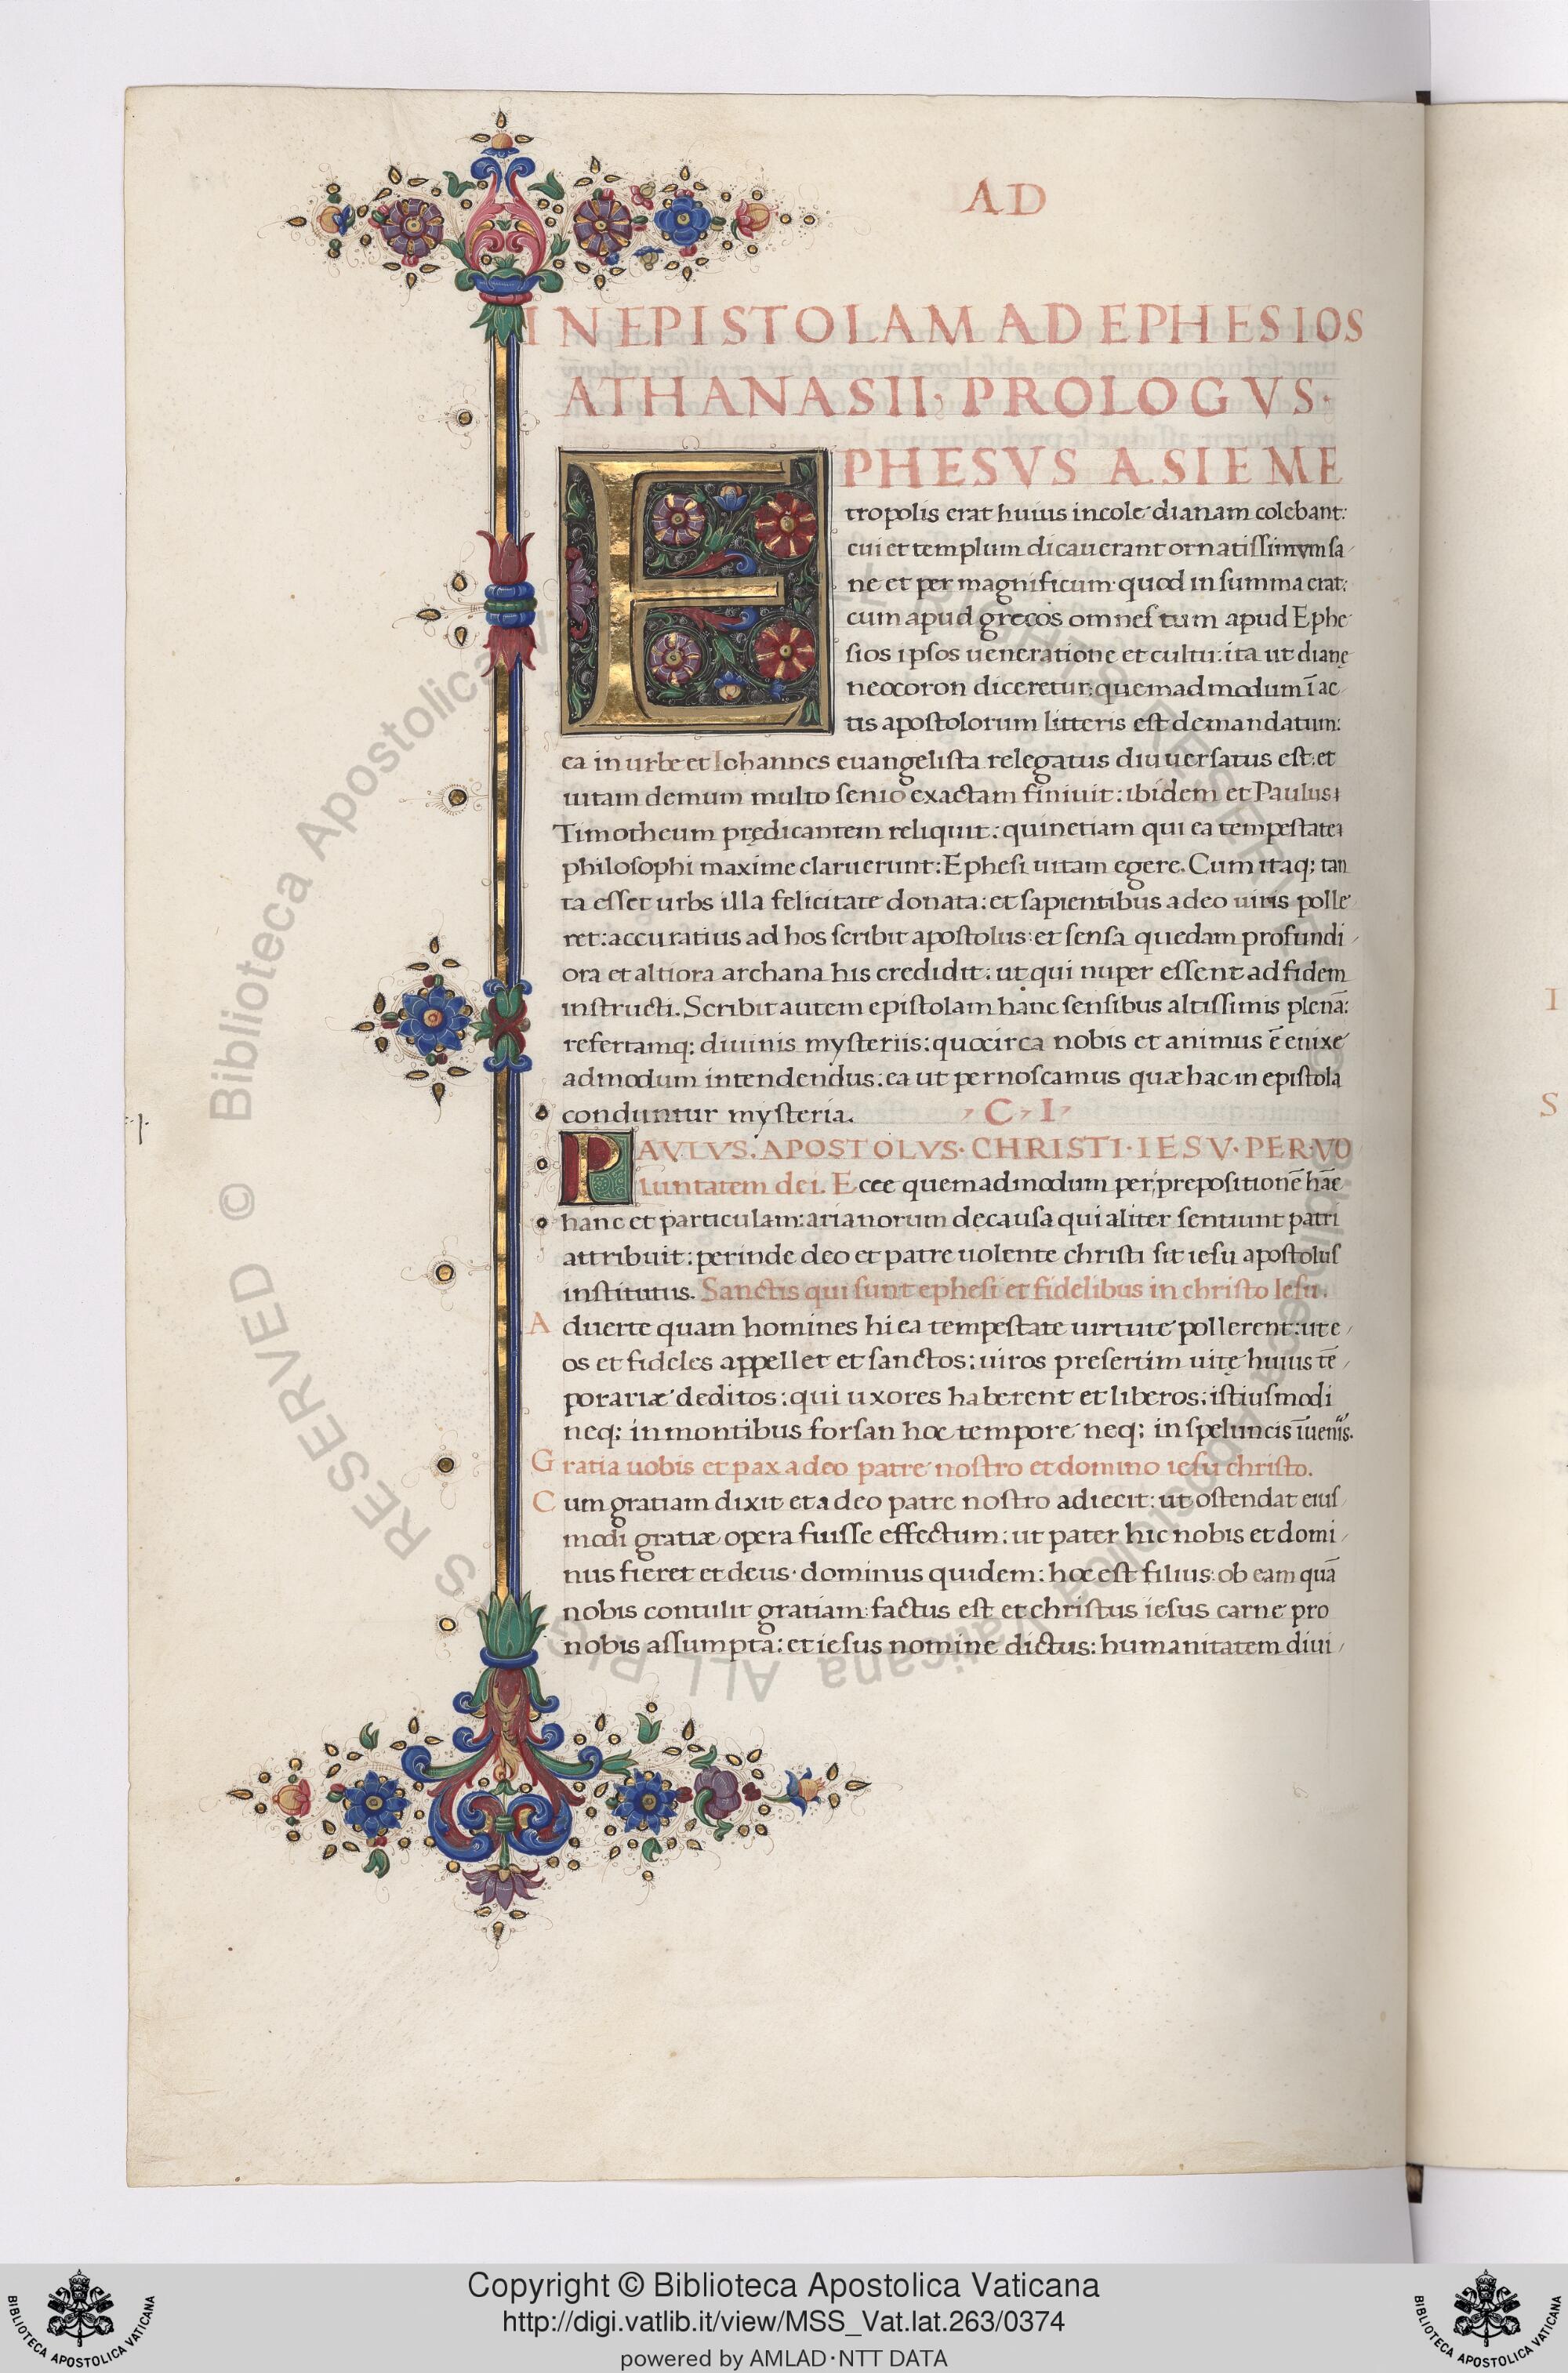 AD
IN EPISTOLAM AD EPHESIOS
ATHANASII, PROLOGVS.
EPHESVS ASIE ME
tropolis erat huius incole dianam colebant:
cui et templum dicauerant ornatissimvm sa
ne et per magnificum quod in summa erat:
cum apud grecos omnes tum apud Ephe
sios ipsos ueneratione et cultu: ita ut dianę
neocoron diceretur: quemadmodum ī ac
tis apostolorum litteris est demandatum:
ea in urbe et Iohannes euangelista relegatus diuuersatus est: et
uitam demum multo senio exactam finiuit: ibidem et Paulus
Timotheum prędicantem reliquit: quinetiam qui ea tempestate
philosophi maxime claruerunt: Ephesi uitam egere. Cum itaq; tan
ta esset urbs illa felicitate donata: et sapientibus adeo uiris polle
ret: accuratius ad hos scribit apostolus: et sensa quedam profundi
ora et altiora archana his credidit: ut qui nuper essent ad fidem
instructi. Scribit autem epistolam hanc sensibus altissimis plenā:
refertamq; diuinis mysteriis: quocirca nobis et animus ē enixe
admodum intendendus: ea ut pernoscamus quæ hac in epistola
conduntur mysteria. C. I.
PAVLVS. APOSTOLVS. CHRISTI. IESV. PER. VO
luntatem dei. Ecce quemadmodum per prepositionē hāc
hanc et particulam: arianorum de causa qui aliter sentiunt patri
attribuit: perinde deo et patre uolente christi sit iesu apostolus
institutus. Sanctis qui sunt ephesi et fidelibus in christo Iesu.
Aduerte quam homines hi ea tempestate uirtute pollerent: ut e
os et fideles appellet et sanctos: uiros presertim uitę huius tē
porariæ deditos: qui uxores haberent et liberos: istiusmodi
neq; in montibus forsan hoc tempore neq; in speluncis īuenis.
Gratia uobis et pax a deo patre nostro et domino iesu christo.
Cum gratiam dixit et a deo patre nostro adiecit: ut ostendat eius
modi gratiæ opera fuisse effectum: ut pater hic nobis et domi
nus fieret et deus. dominus quidem: hoc est filius: ob eam quā
nobis contulit gratiam: factus est et christus iesus carne pro
nobis assumpta: et iesus nomine dictus: humanitatem diui
I
S
© Biblioteca Apostolica Vaticana ALL RIGHTS RESERVED
Copyright © Biblioteca Apostolica Vaticana
http://digi.vatlib.it/view/MSS_Vat.lat.263/0374
powered by AMLAD·NTT DATA
BIBLIOTECA APOSTOLICA VATICANA
BIBLIOTECA APOSTOLICA VATICANA